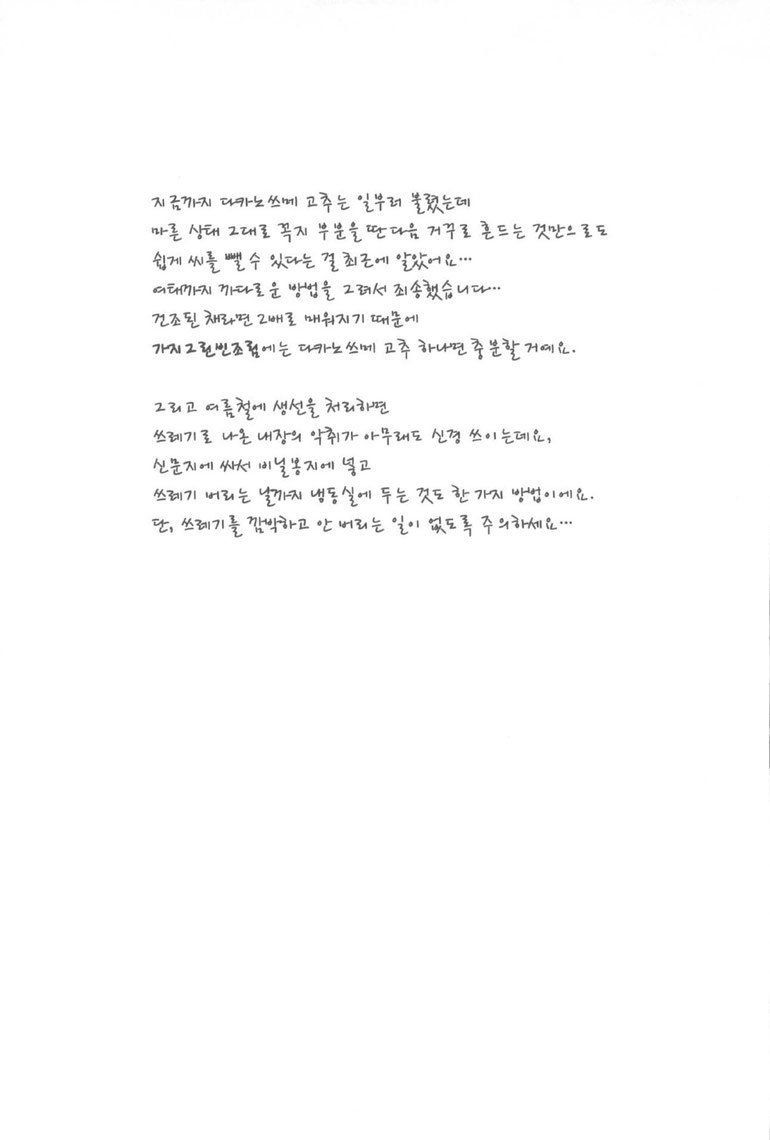 지금까지 다카노쓰메 고추는 일부러 불렸는데
마른 상태 그대로 꼭지 부분을 딴 다음 거꾸로 흔드는 것만으로도
쉽게 씨를 뺄 수 있다는 걸 최근에 알았어요…
여태까지 까다로운 방법을 그려서 죄송했습니다…
건조된 채라면 2배로 매워지기 때문에
가지그린빈조림에는 다카노쓰메 고추 하나면 충분할 거예요.
그리고 여름철에 생선을 처리하면
쓰레기로 나온 내장의 악취가 아무래도 신경 쓰이는데요,
신문지에 싸서 비닐봉지에 넣고
쓰레기 버리는 날까지 냉동실에 두는 것도 한 가지 방법이에요.
단, 쓰레기를 깜박하고 안 버리는 일이 없도록 주의하세요…